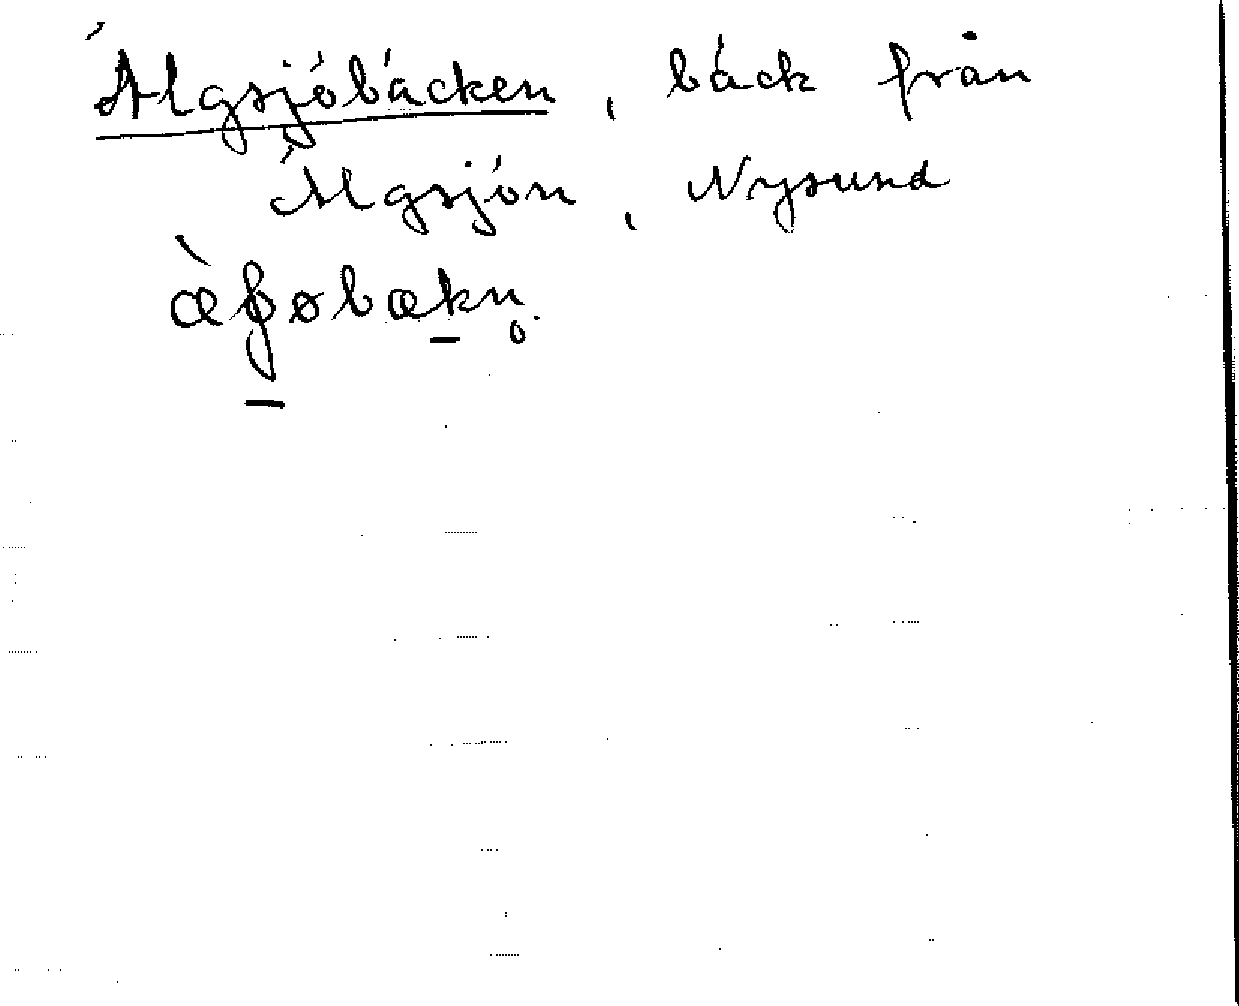 Älgsjöbäcken, bäck från
Älgsjön, Nysund